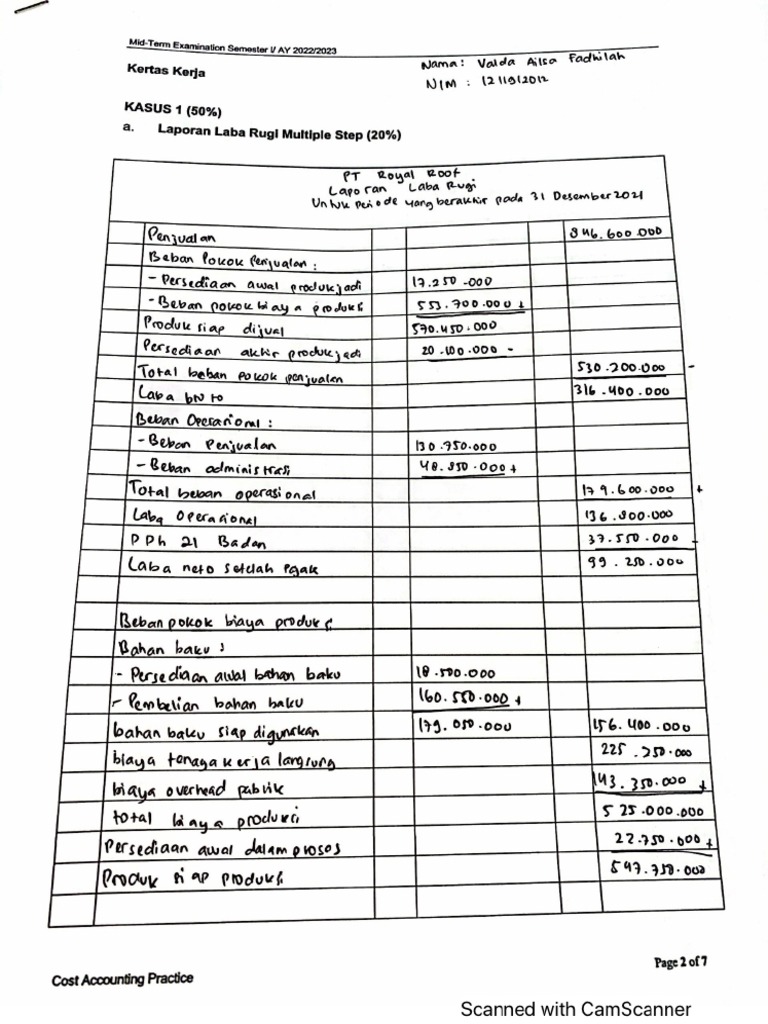 Mid-Term Examination Semester I/ AY 2022/2023
Kertas Kerja
Nama: Valda Ailsa Fadhilah
NIM : 1211912012
KASUS 1 (50%)
a. Laporan Laba Rugi Multiple Step (20%)
PT Royal Roof
Laporan Laba Rugi
Untuk periode yang berakhir pada 31 Desember 2021
Penjualan 846.600.000
Beban Pokok Penjualan :
- Persediaan awal produk jadi 17.250.000
- Beban pokok biaya produksi 553.700.000 +
Produk siap dijual 570.450.000
Persediaan akhir produk jadi 20.100.000 -
Total beban pokok penjualan 530.200.000 -
Laba bruto 316.400.000
Beban Operasional :
- Beban Penjualan 130.750.000
- Beban administrasi 48.850.000 +
Total beban operasional 179.600.000 +
Laba Operasional 136.800.000
PPh 21 Badan 37.550.000 -
Laba neto setelah Pajak 99.250.000
Beban pokok biaya produksi
Bahan baku :
- Persediaan awal bahan baku 18.500.000
- Pembelian bahan baku 160.550.000 +
bahan baku siap digunakan 179.050.000 156.400.000
biaya tenaga kerja langsung 225.250.000
biaya overhead pabrik 143.350.000 +
total biaya produksi 525.000.000
Persediaan awal dalam proses 22.750.000 +
Produk siap produksi 547.750.000
Cost Accounting Practice
Page 2 of 7
Scanned with CamScanner